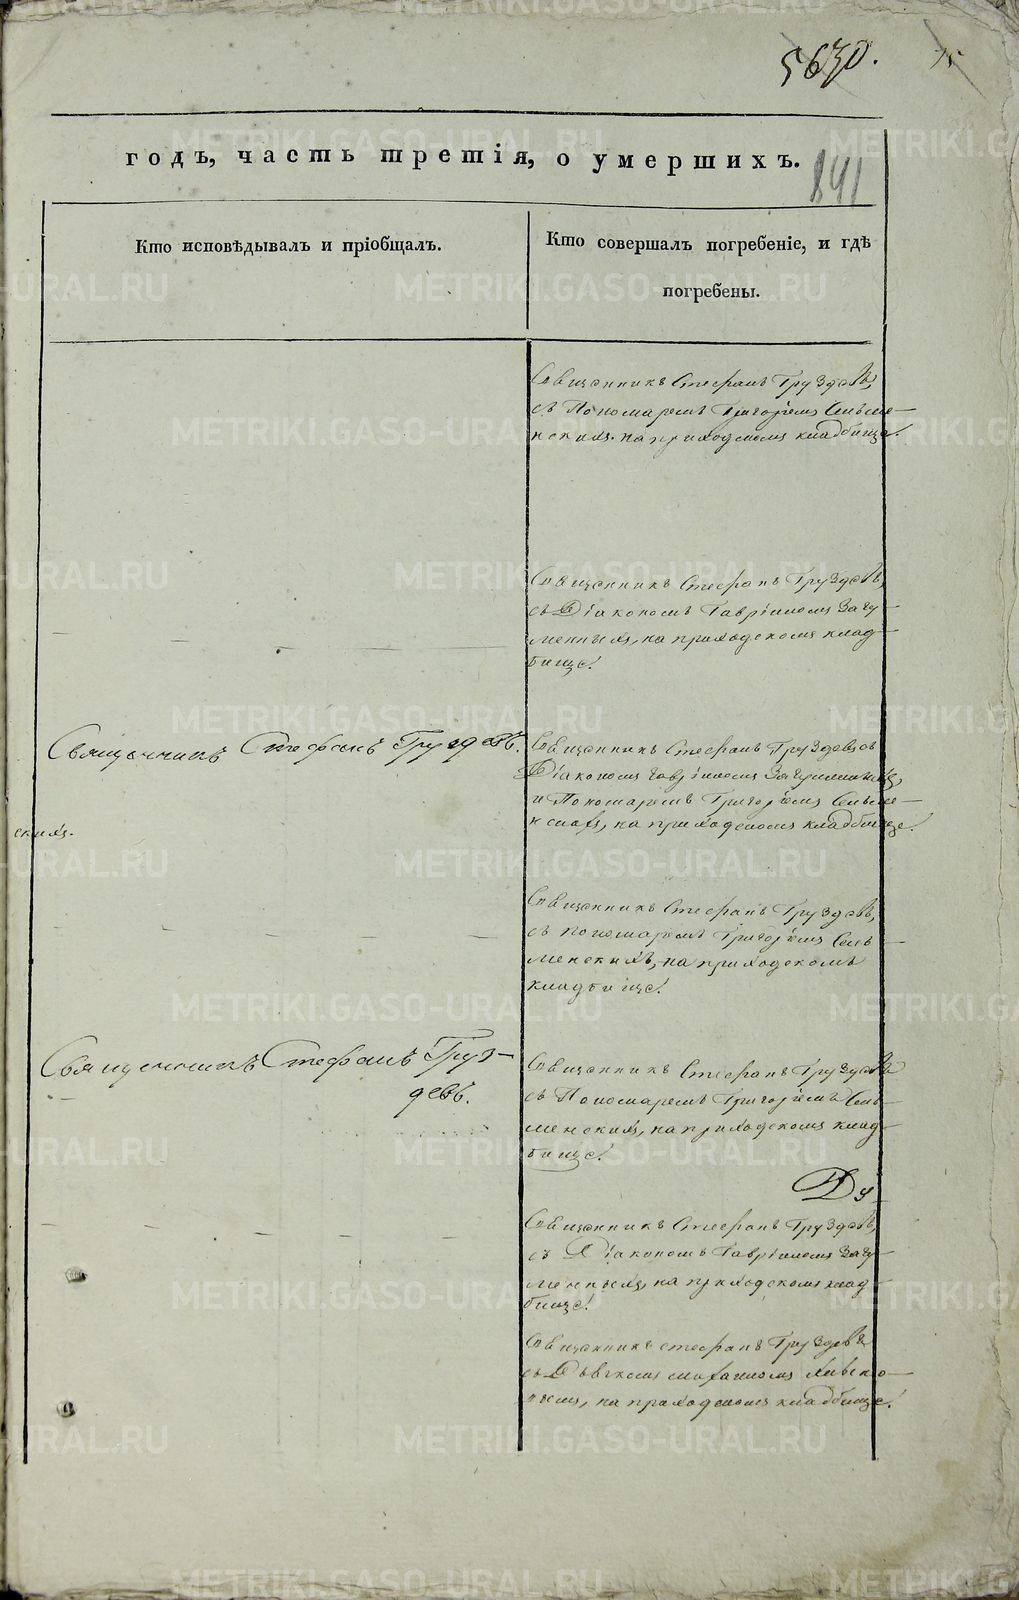 5630.
75
годъ, часть третія, о умершихъ.
841
Кто исповѣдывалъ и пріобщалъ.
Кто совершалъ погребеніе, и гдѣ
погребены.
Священникъ Стефанъ Груздевъ,
съ Пономаремъ Григоріемъ
на приходскомъ кладбище.
Священникъ Стефанъ Груздевъ,
съ Діакономъ Гавріиломъ Загу-
менныхъ, на приходскомъ клад-
бище.
Священникъ Стефанъ Груздевъ.
Священникъ Стефанъ Груздевъ съ
Діакономъ Гавріиломъ
и Пономаремъ Григоріемъ
на приходскомъ кладбище.
скихъ.
Священникъ Стефанъ Груздевъ,
съ пономаремъ Григоріемъ
на приходскомъ
кладбище.
Священникъ Стефанъ Груз-
девъ.
Священникъ Стефанъ Груздевъ
съ Пономаремъ Григоріемъ
на приходскомъ клад-
бище.
Священникъ Стефанъ Груздевъ,
съ Діакономъ Гавріиломъ Загу-
менныхъ, на приходскомъ клад-
бище.
Священникъ Стефанъ Груздевъ
съ
на приходскомъ кладбище.
METRIKI.GASO-URAL.RU